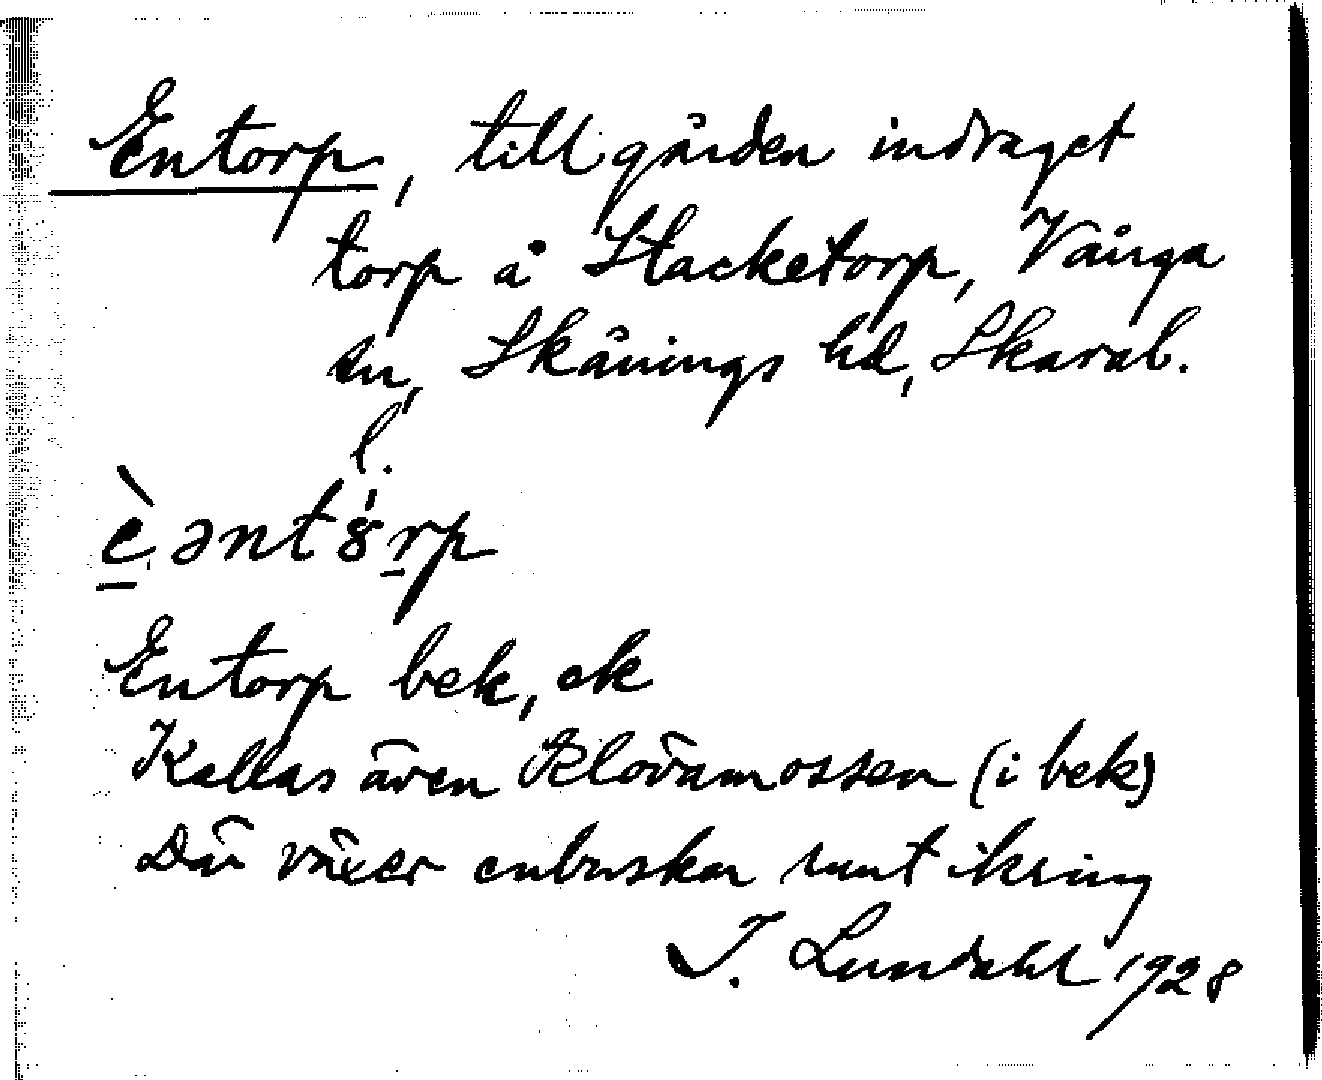 Entorp, till gården indraget
torp å Stacketorp, Vånga
sn, Skånings hd, Skarab.
l.
è̱əntȣ́ṟp
Entorp bek, ek
Kallas även Klovamossen (i bek)
Där växer enbuskar runt ikring
I. Lundahl 1928